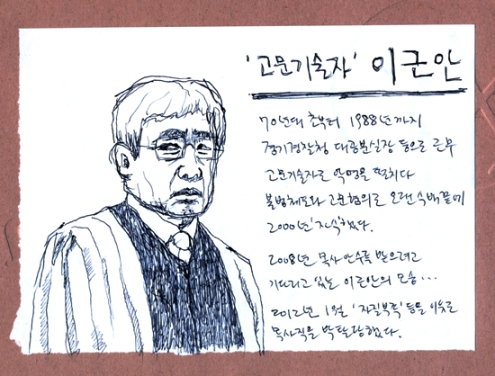 '고문기술자' 이근안
70년대 초부터 1988년까지
경기경찰청 대공분실장 등으로 근무
고문기술자로 악명을 떨치다
불법체포와 고문혐의로 오랜 수배끝에
2000년 '자수'했다.
2008년 목사 안수를 받으려고
기다리고 있는 이근안의 모습...
2012년 1월 '자질부족' 등을 이유로
목사직을 박탈당했다.